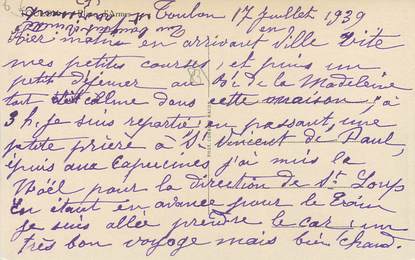 Toulon 17 juillet 1939
Hier matin en arrivant ville vite
mes petites courses, et puis un
petit déjeuner au Bd de la Madeleine
tout était calme dans cette maison, à
3 h. je suis repartie en passant, une
petite prière à St Vincent de Paul,
puis aux Capucines j'ai mis la
Noël pour la direction de St Loup
En étant en avance pour le train
je suis allée prendre le car, un
très bon voyage mais bien chaud.